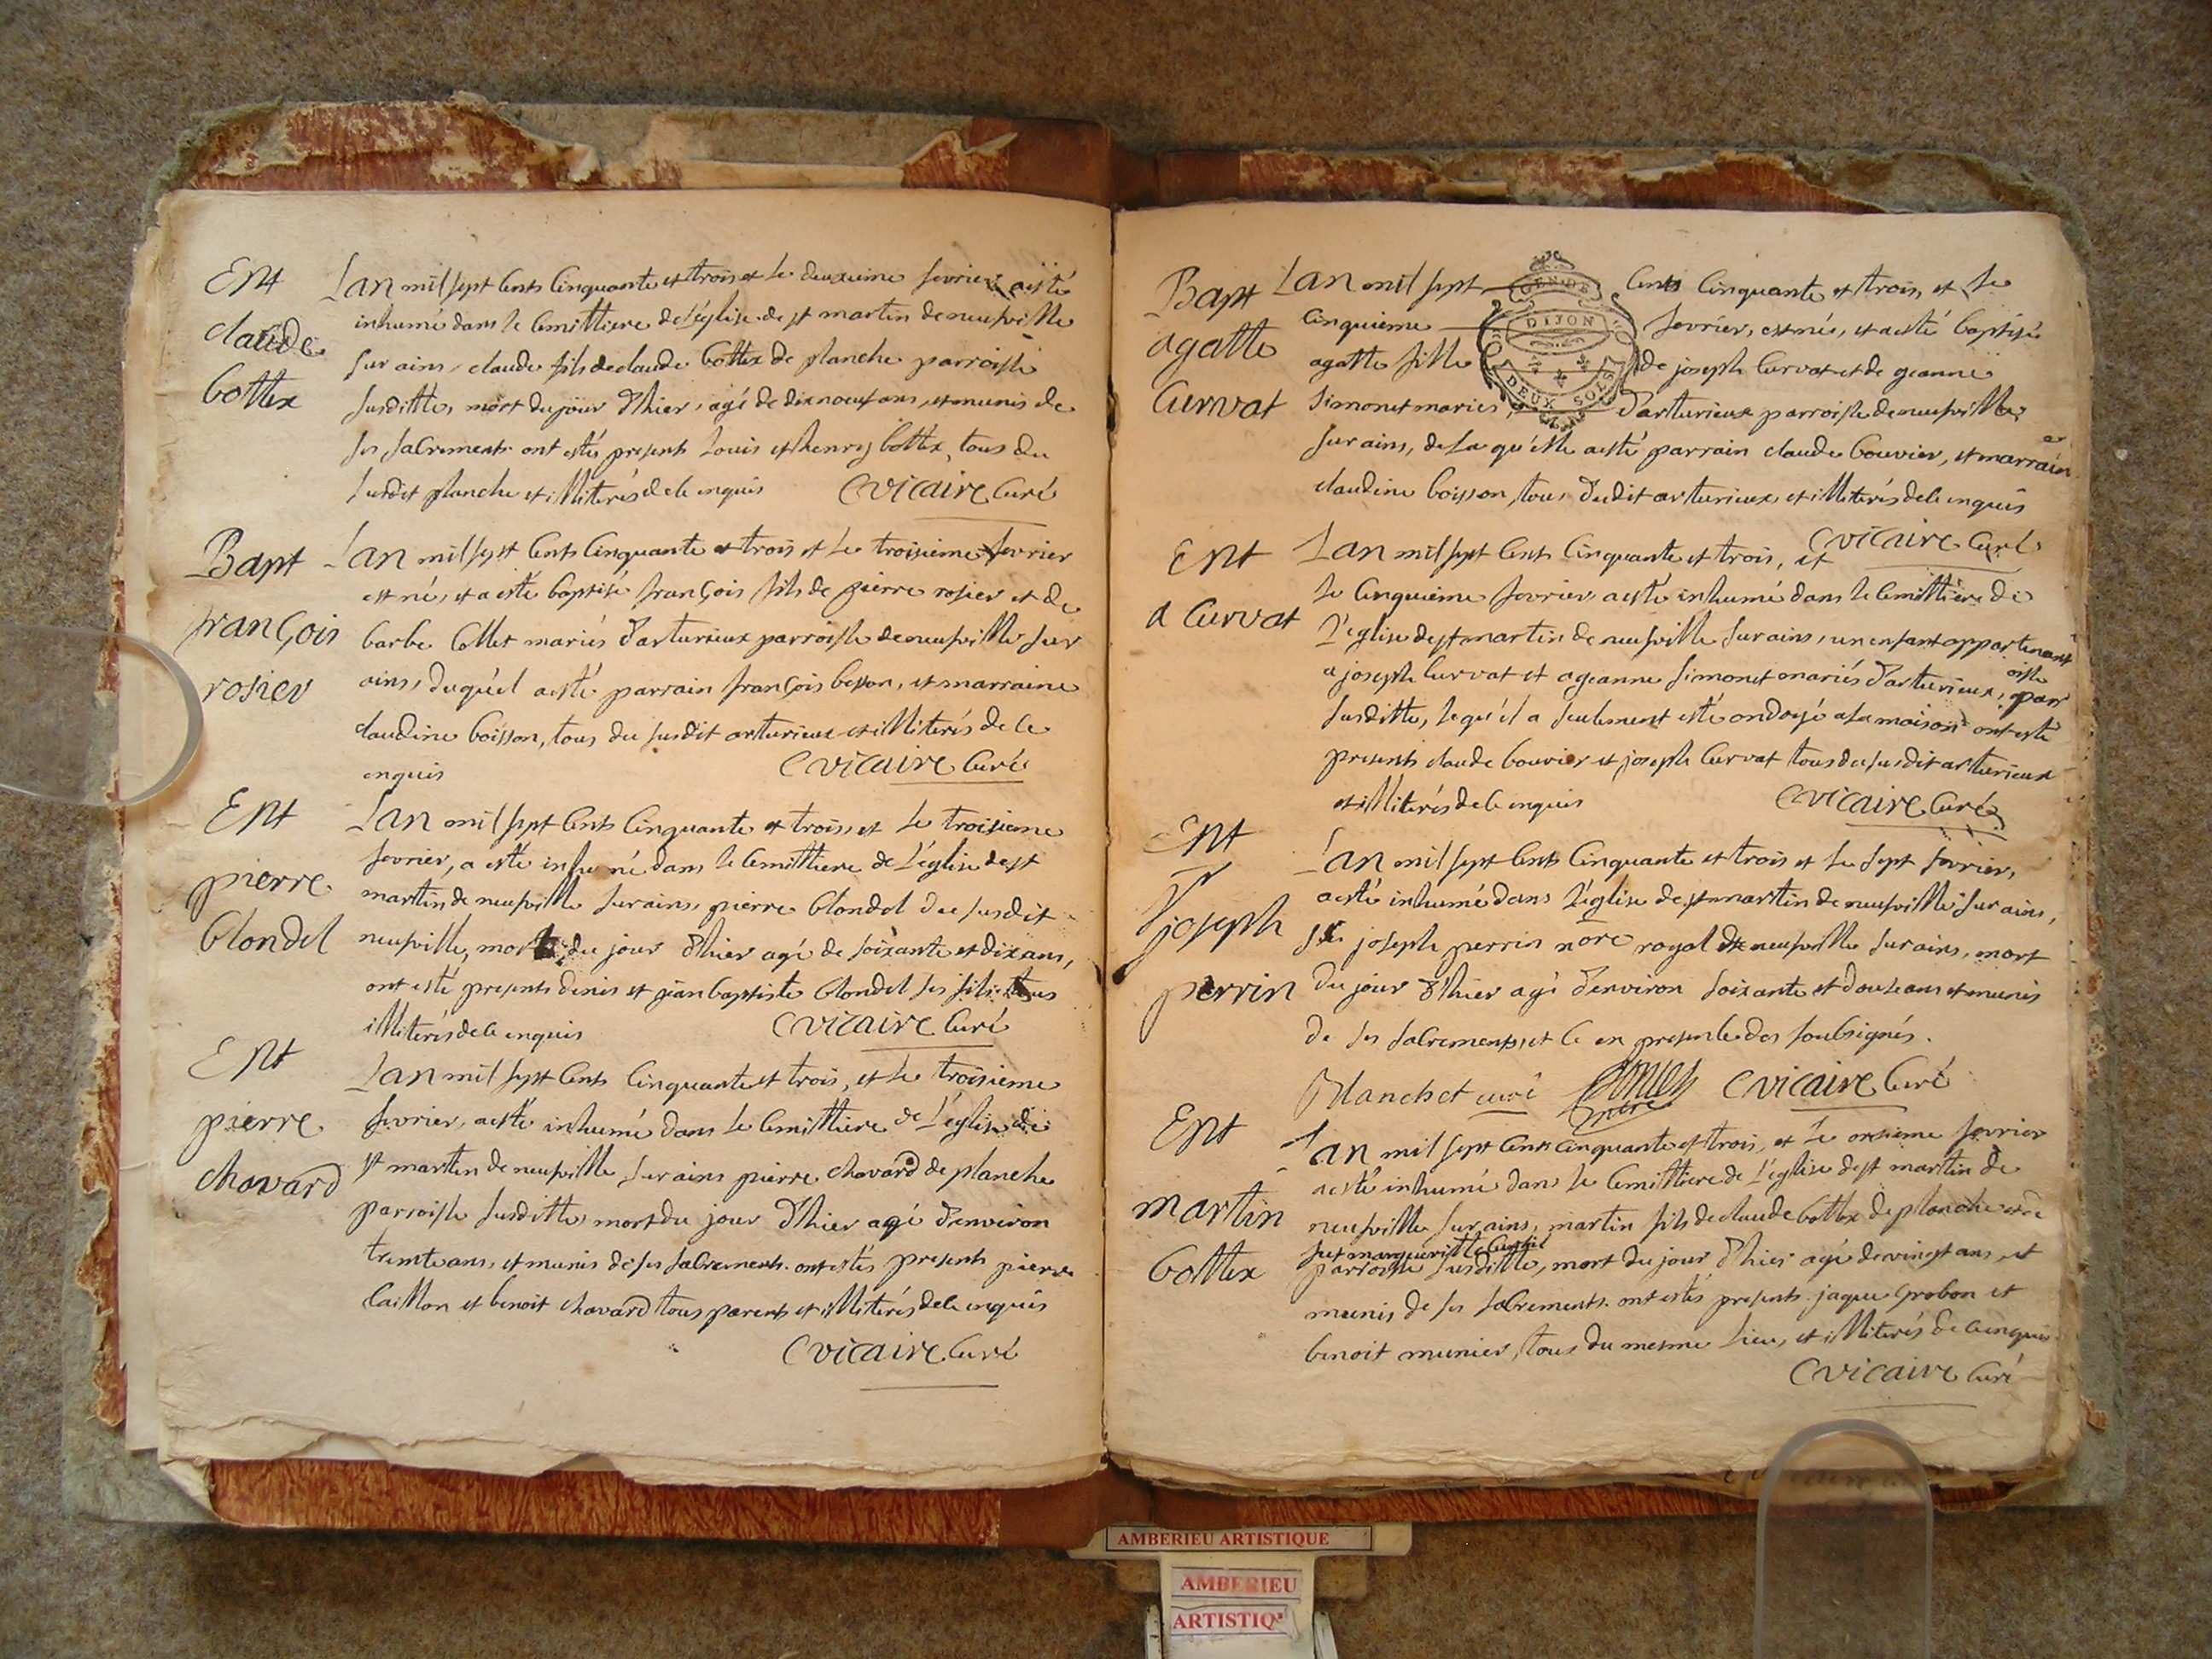 Ent
claude
bottex
Lan mil sept cents cinquante et trois et le deuxieme fevrier a esté
inhumé dans le cemittiere de l'église de st martin de neufville
sur ains, claude fils de claude bottex de planche parroisse
susditte, mort du jour d'hier, agé de dix neuf ans, et munis de
ses sacrements ont estés present Louis et henry bottex, tous du
susdit planche et illiterés de ce enquis Cvicaire Curé
Bapt
françois
rosier
Lan mil sept cents cinquante et trois et le troisieme fevrier
est né, et a esté baptisé françois fils de pierre rosier et de
barbe collet mariés d'arturieux parroisse de neufville sur
ains, duquél a esté parrain françois besson, et marraine
claudine boisson, tous du susdit arturieux et illiterés de ce
enquis Cvicaire Curé
Ent
pierre
blondel
Lan mil sept cents cinquante et trois, et le troisieme
fevrier, a esté inhumé dans le cemittiere de l'église de st
martin de neufville sur ains, pierre blondel du susdit
neufville, mort du jour d'hier agé de soixante et dix ans,
ont esté presents denis et jean baptiste blondel ses fils tous
illiterés de ce enquis Cvicaire Curé
Ent
pierre
chavard
Lan mil sept cents cinquante et trois, et le troisieme
fevrier, a esté inhumé dans le cemittiere de l'église de
st martin de neufville sur ains pierre chavard de planche
parroisse susditte mort du jour d'hier agé d'environ
trente ans, et munis de ses sacrements. ont estés presents pierre
caillon et benoit chavard tous parents et illiterés de ce enquis
Cvicaire Curé
Bapt
agatte
Curvat
Lan mil sept cents cinquante et trois, et le
cinquieme fevrier, est née, et a esté baptisée
agatte fille de joseph curvat et de jeanne
simonet mariés, d'arturieux parroisse de neufville
GEN DE
DIJON
DEUX SOLS
sur ains, de la qu'élle a esté parrain claude bouvier, et marraine
claudine boisson, tous dudit arturieux, et illiterés de ce enquis
Cvicaire Curé
Ent
a Curvat
Lan mil sept cents cinquante et trois, et
le cinquieme fevrier a esté inhumé dans le cemittiere de
l'église de st martin de neufville sur ains, un enfant appartenant
a joseph curvat et a jeanne simonet mariés d'arturieux, parroisse
susditte, lequ'el a seulement esté ondoyé a la maison ont esté
presents claude bouvier et joseph curvat tous du susdit arturieux
et illiterés de ce enquis Cvicaire Curé
Ent
joseph
perrin
Lan mil sept cents cinquante et trois et le sept fevrier,
a esté inhumé dans l'église de st martin de neufville sur ains,
sr joseph perrin nore royal de neufville sur ains, mort
du jour d'hier agé d'environ soixante et douze ans et munis
de ses sacrements, et ce en presence des soubsignés.
Blanchet curé Cvicaire Curé
Ent
martin
bottex
Lan mil sept cents cinquante et trois, et le onzieme fevrier
a esté inhumé dans le cemittiere de l'église de st martin de
neufville sur ains, martin fils de claude bottex de planche
parroisse susditte, mort du jour d'hier agé de vingt ans, et
munis de ses sacrements. ont estés presents jaque grobon et
benoit munier, tous du mesme lieu, et illiterés de ce enquis
Cvicaire Curé
AMBERIEU ARTISTIQUE
AMBERIEU
ARTISTIQ